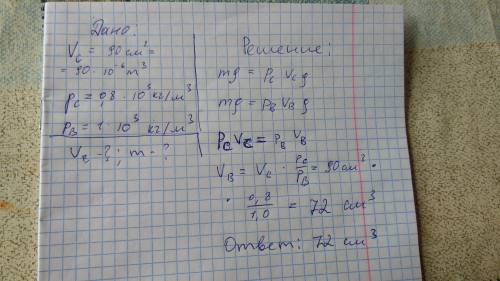 Дано:
Vс = 90 см³ =
= 90 · 10⁻⁶ m³
ρс = 0,8 · 10³ кг/м³
ρв = 1 · 10³ кг/м³
Vв - ?; m - ?
Решение:
mg = ρс Vс g
mg = ρв Vв g
ρс Vс = ρв Vв
Vв = Vс · ρс/ρв = 90 см³ ·
· 0,8/1,0 = 72 см³
Ответ: 72 см³